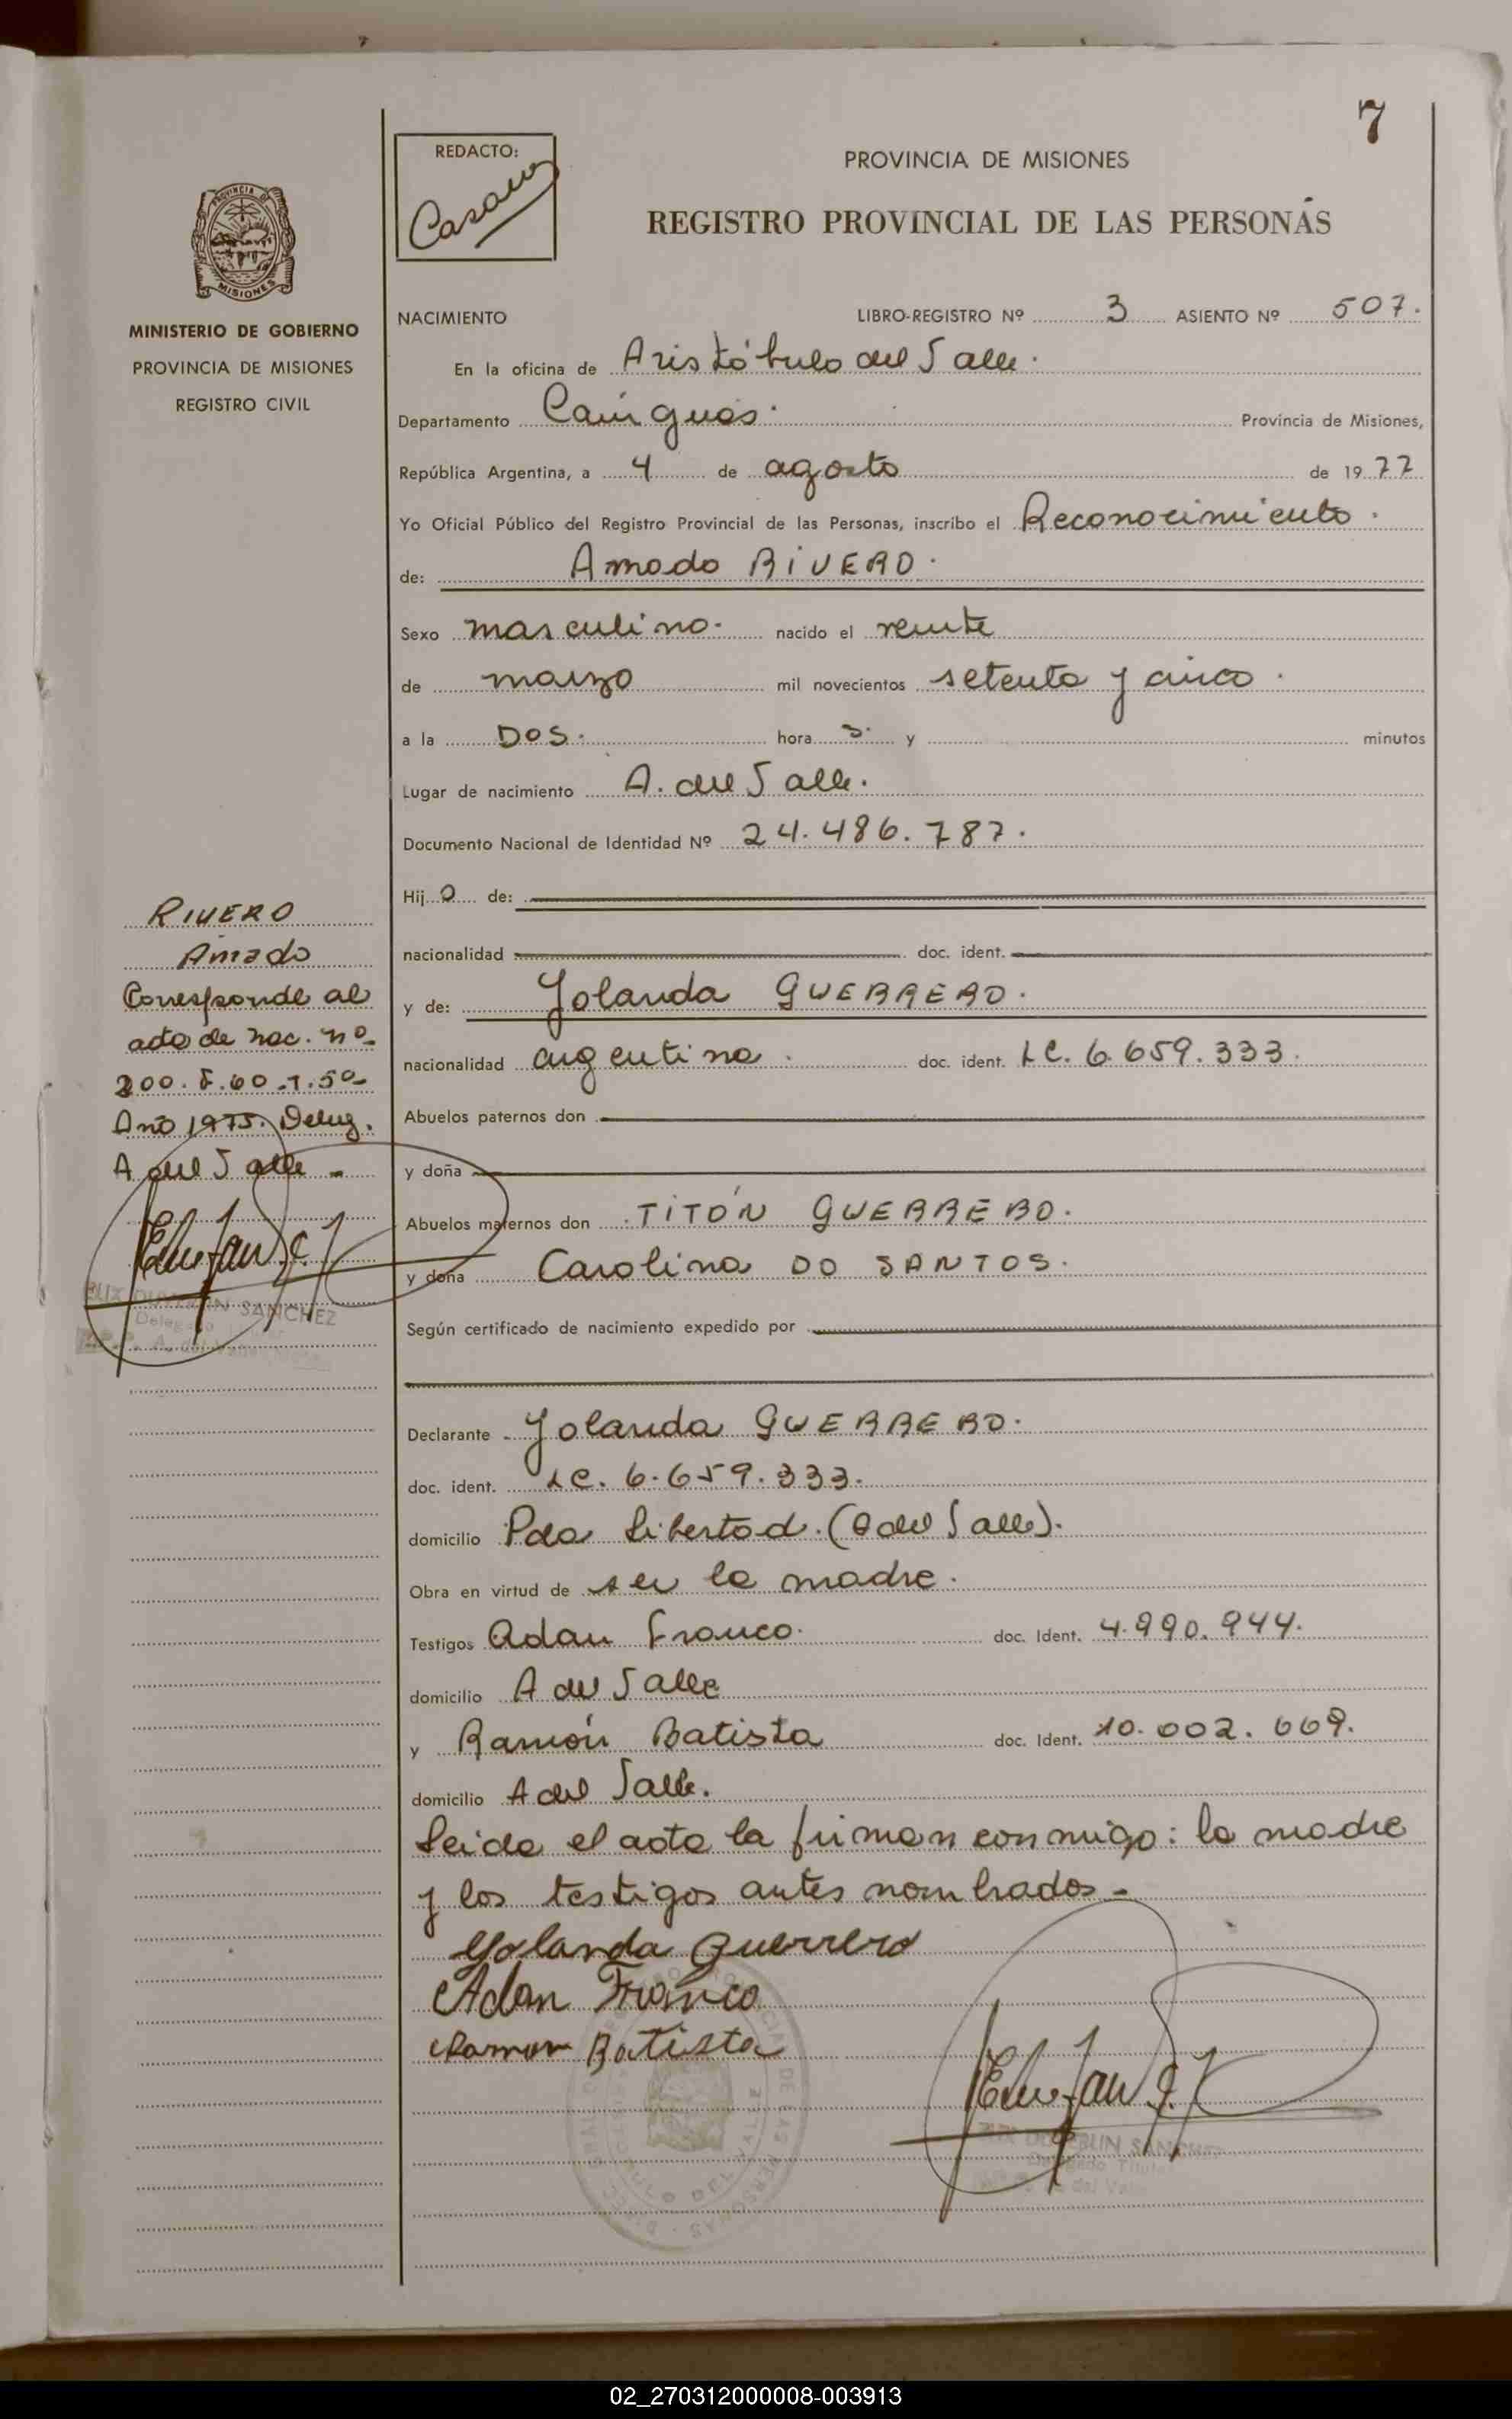 7
REDACTO:
Casano
PROVINCIA DE MISIONES
REGISTRO PROVINCIAL DE LAS PERSONAS
PROVINCIA DE
MISIONES
MINISTERIO DE GOBIERNO
PROVINCIA DE MISIONES
REGISTRO CIVIL
NACIMIENTO LIBRO-REGISTRO Nº 3 ASIENTO Nº 507.
En la oficina de Aristóbulo del Valle.
Departamento Cainguás. Provincia de Misiones,
República Argentina, a 4 de agosto de 1977
Yo Oficial Público del Registro Provincial de las Personas, inscribo el Reconocimiento.
de: Amado RIVERO.
Sexo masculino. nacido el veinte
de marzo mil novecientos setenta y cinco.
a la DOS. hora s. y minutos
Lugar de nacimiento A. del Valle.
Documento Nacional de Identidad Nº 24.486.787.
Hij o de:
nacionalidad doc. ident.
y de: Yolanda GUERRERO.
nacionalidad argentina. doc. ident. LC. 6.659.333.
Abuelos paternos don
y doña
Abuelos maternos don TITÓN GUERRERO.
y doña Carolina DO SANTOS.
Según certificado de nacimiento expedido por
Declarante Yolanda GUERRERO.
doc. ident. LC. 6.659.333.
domicilio Pda Libertad. (A del Valle).
Obra en virtud de ser la madre.
Testigos Adan Franco. doc. Ident. 4.990.944.
domicilio A del Valle
y Ramón Batista doc. Ident. 10.002.669.
domicilio A del Valle.
Leida el acta la firman conmigo: la madre
y los testigos antes nombrados-
Yolanda Guerrero
Adan Franco
Ramon Batista
RIVERO
Amado
Corresponde al
acta de nac. nº
200. F. 60. T. 5º
Año 1975. Deleg.
A del Valle -
SANCHEZ
02_270312000008-003913